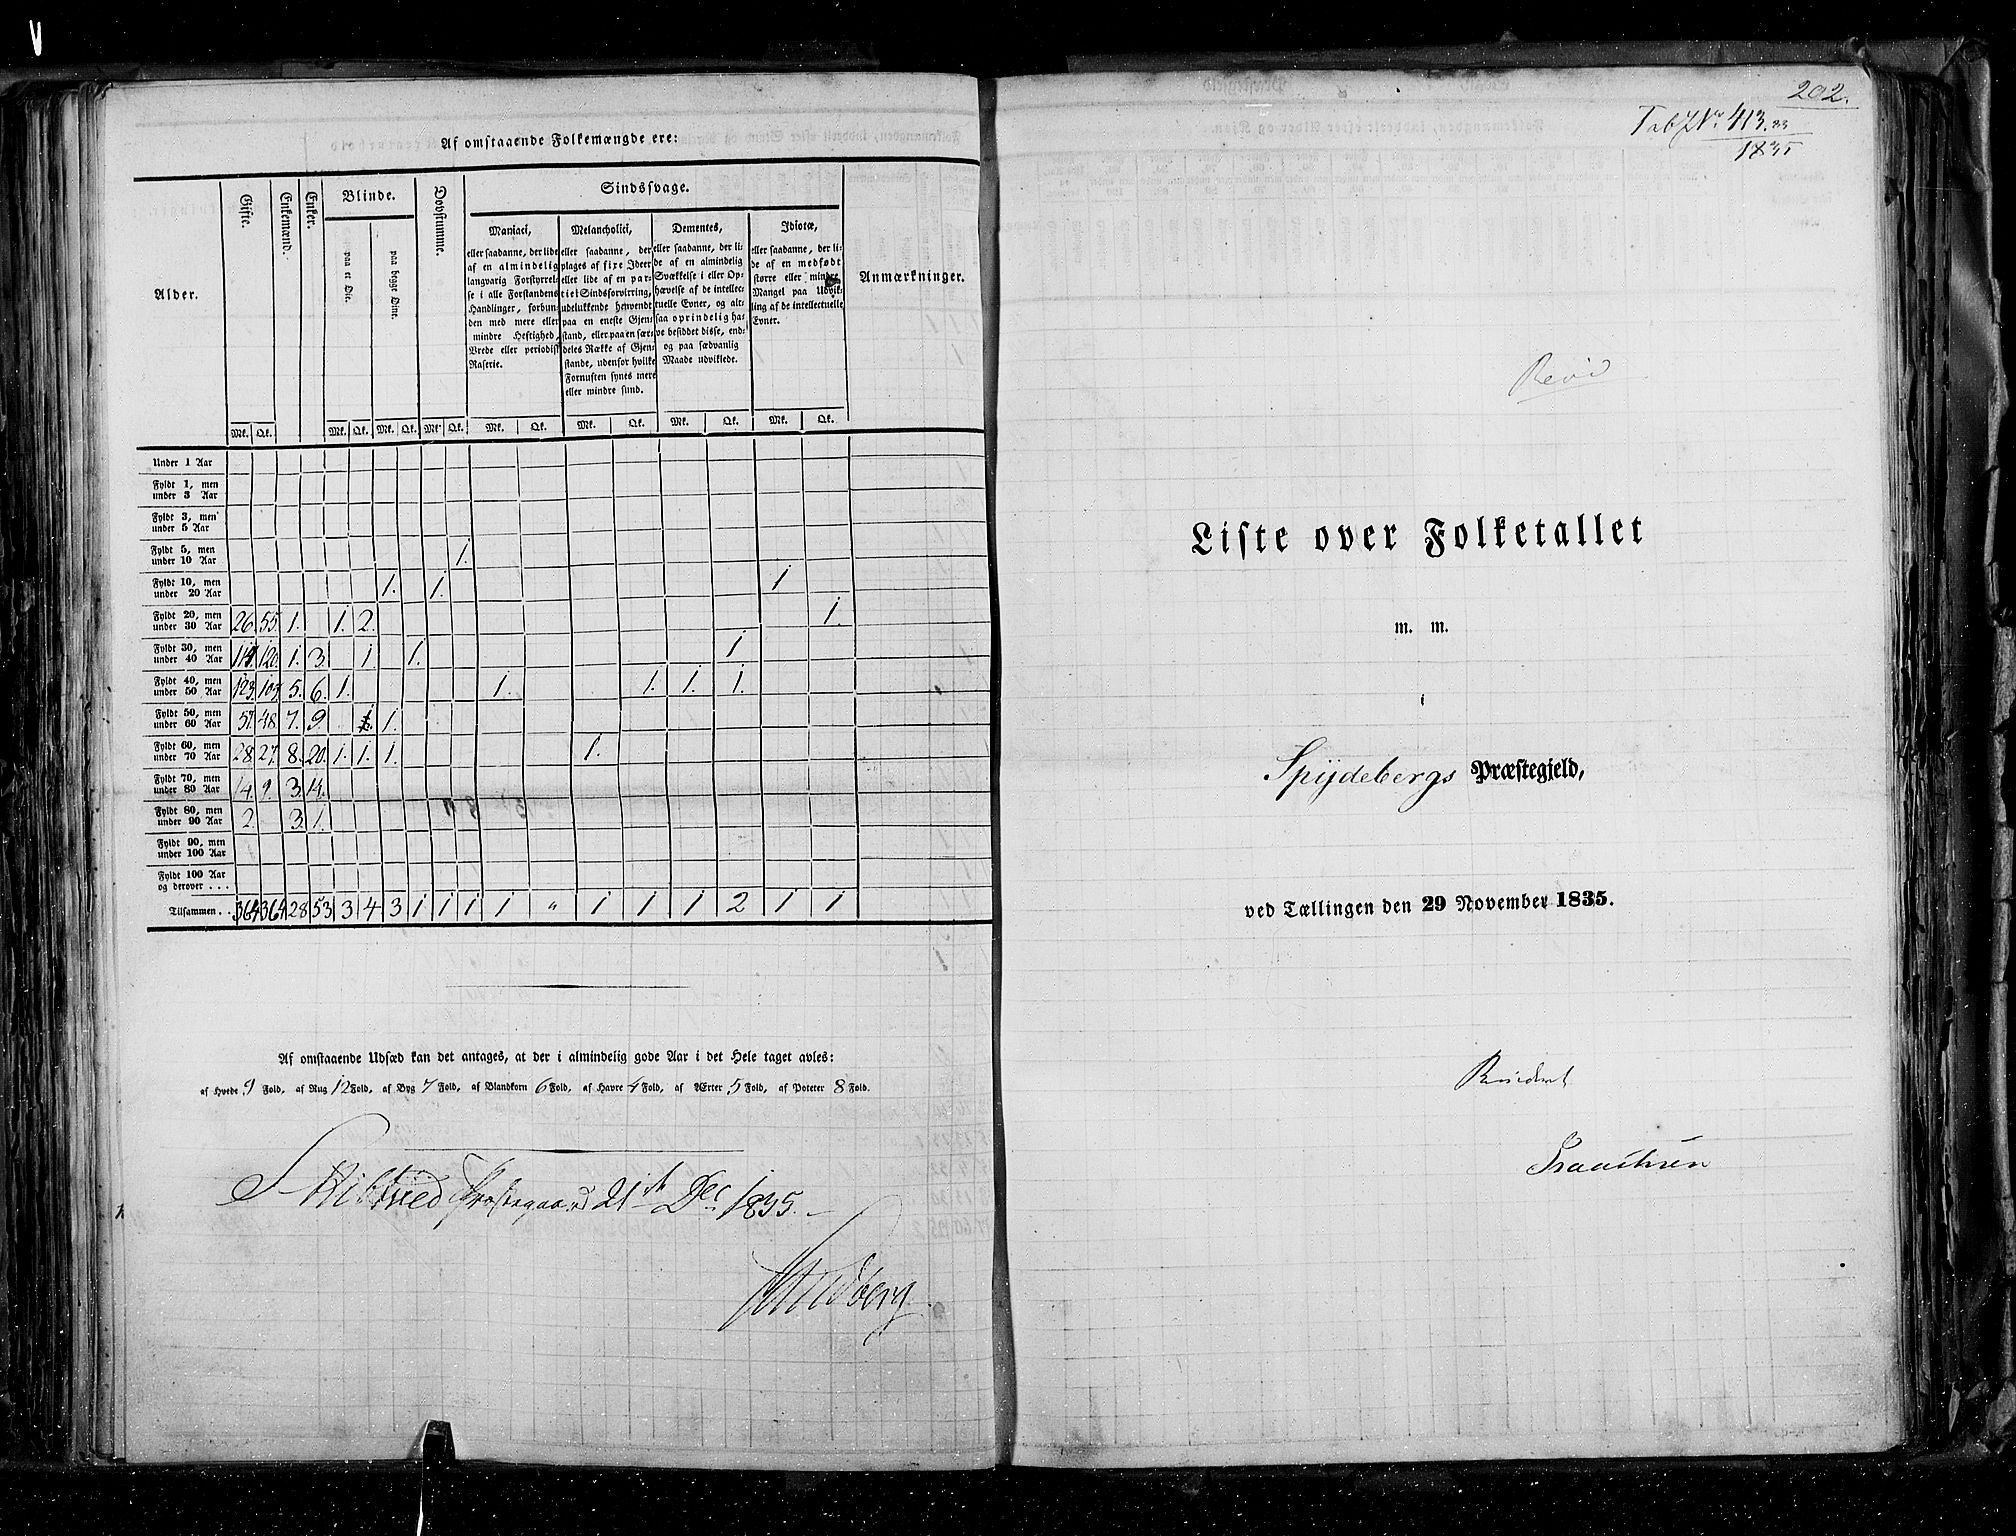 Af omstaaende Folkemængde ere:
Alder. Gifte. Enkemænd. Enker. Blinde. Døvstumme. Sindssvage. Anmærkninger.
paa et Øie. paa begge Øine.
Maniaci,
eller saadanne, der lide
af en almindelig
langvarig Forstyrrel-
se i alle Forstandens
Handlinger, forbun-
den med mere eller
mindre Heftighed,
Vrede eller periodisk
Raserie.
Melancholici,
eller saadanne, der
plages af fixe Ideer
eller lide af en par-
tiel Sindsforvirring,
udelukkende henvendt
paa en eneste Gjen-
stand, eller paa en sær-
deles Række af Gjen-
stande, udenfor hvilke
Fornuften synes mere
eller mindre sund.
Dementes,
eller saadanne, der li-
de af en almindelig
Svækkelse i eller Op-
hævelse af de intellec-
tuelle Evner, og alt-
saa oprindelig ha-
ve besiddet disse, end-
og paa sædvanlig
Maade udviklede.
Idiotæ,
eller saadanne, der li-
de af en medfødt
større eller mindre
Mangel paa Udvik-
ling af de intellectuelle
Evner.
Mk. Qk. Mk. Qk. Mk. Qk. Mk. Qk. Mk. Qk. Mk. Qk. Mk. Qk. Mk. Qk.
Under 1 Aar
Fyldt 1, men
under 3 Aar
Fyldt 3, men
under 5 Aar
Fyldt 5, men
under 10 Aar 1.
Fyldt 10, men
under 20 Aar 1. 1. 1
Fyldt 20, men
under 30 Aar 26. 55. 1. 1. 2. 1.
Fyldt 30, men
under 40 Aar 114 120. 1. 3. 1 1. 1
Fyldt 40, men
under 50 Aar 123. 105. 5. 6. 1. 1. 1. 1. 1.
Fyldt 50, men
under 60 Aar 57. 48. 7. 9. 1. 1.
Fyldt 60, men
under 70 Aar 28. 27. 8. 20. 1. 1. 1. 1.
Fyldt 70, men
under 80 Aar 14. 9. 3. 14.
Fyldt 80, men
under 90 Aar 2. 3. 1.
Fyldt 90, men
under 100 Aar
Fyldt 100 Aar
og derover . . .
Tilsammen . . 364 364 28 53 3 4 3 1 1 1 1 " 1 1 1 2 1 1
Af omstaaende Udsæd kan det antages, at der i almindelig gode Aar i det Hele taget avles:
af Hvede 9 Fold, af Rug 12 Fold, af Byg 7 Fold, af Blandkorn 6 Fold, af Havre 4 Fold, af Ærter 5 Fold, af Poteter 8 Fold.
Skibtved Præstegaard 21de Dec 1835.
202.
Tab No. 413.33
1835
Revid
Liste over Folketallet
m. m.
i
Spydebergs Præstegjeld,
ved Tællingen den 29 November 1835.
Revideret